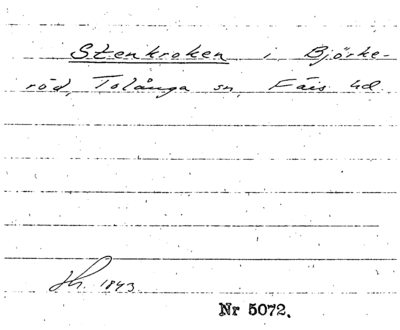 Stenkroken i Björke-
röd, Tolånga sn, Färs hd.
Hh. 1843
Nr 5072.